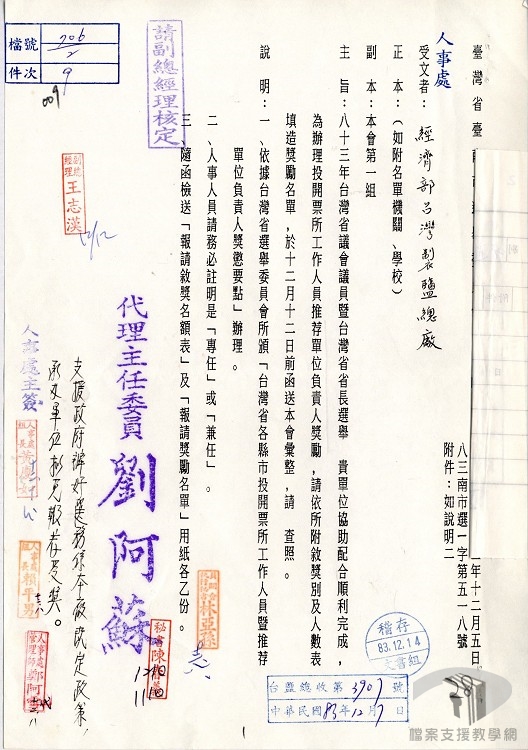 檔號 206/2
件次 9
009
請副總經理核定
臺灣省臺
人事處
受文者：經濟部台灣製鹽總廠
正本：（如附名單機關、學校）
副本：本會第一組
八三南市選一字第五一八號
年十二月五日
附件：如說明二
主旨：八十三年台灣省議會議員暨台灣省省長選舉 貴單位協助配合順利完成，
為辦理投開票所工作人員推荐單位負責人獎勵，請依所附敘獎別及人數表
填造獎勵名單，於十二月十二日前函送本會彙整，請 查照。
說明：一、依據台灣省選舉委員會所頒「台灣省各縣市投開票所工作人員暨推荐
單位負責人獎懲要點」辦理。
二、人事人員請務必註明是「專任」或「兼任」。
三、隨函檢送「報請敘獎名額表」及「報請獎勵名單」用紙各乙份。
代理主任委員 劉阿蘇
副總經理 王志漢
12/12
支援政府辦好選務係本廠既定政策，
人事處主簽
人事處
賴平男
人事處管理師
秘書 陳
林亞蓀
稽存
83.12.14
文書組
台鹽總收第3907號
中華民國83年12月7日
1
檔案支援教學網